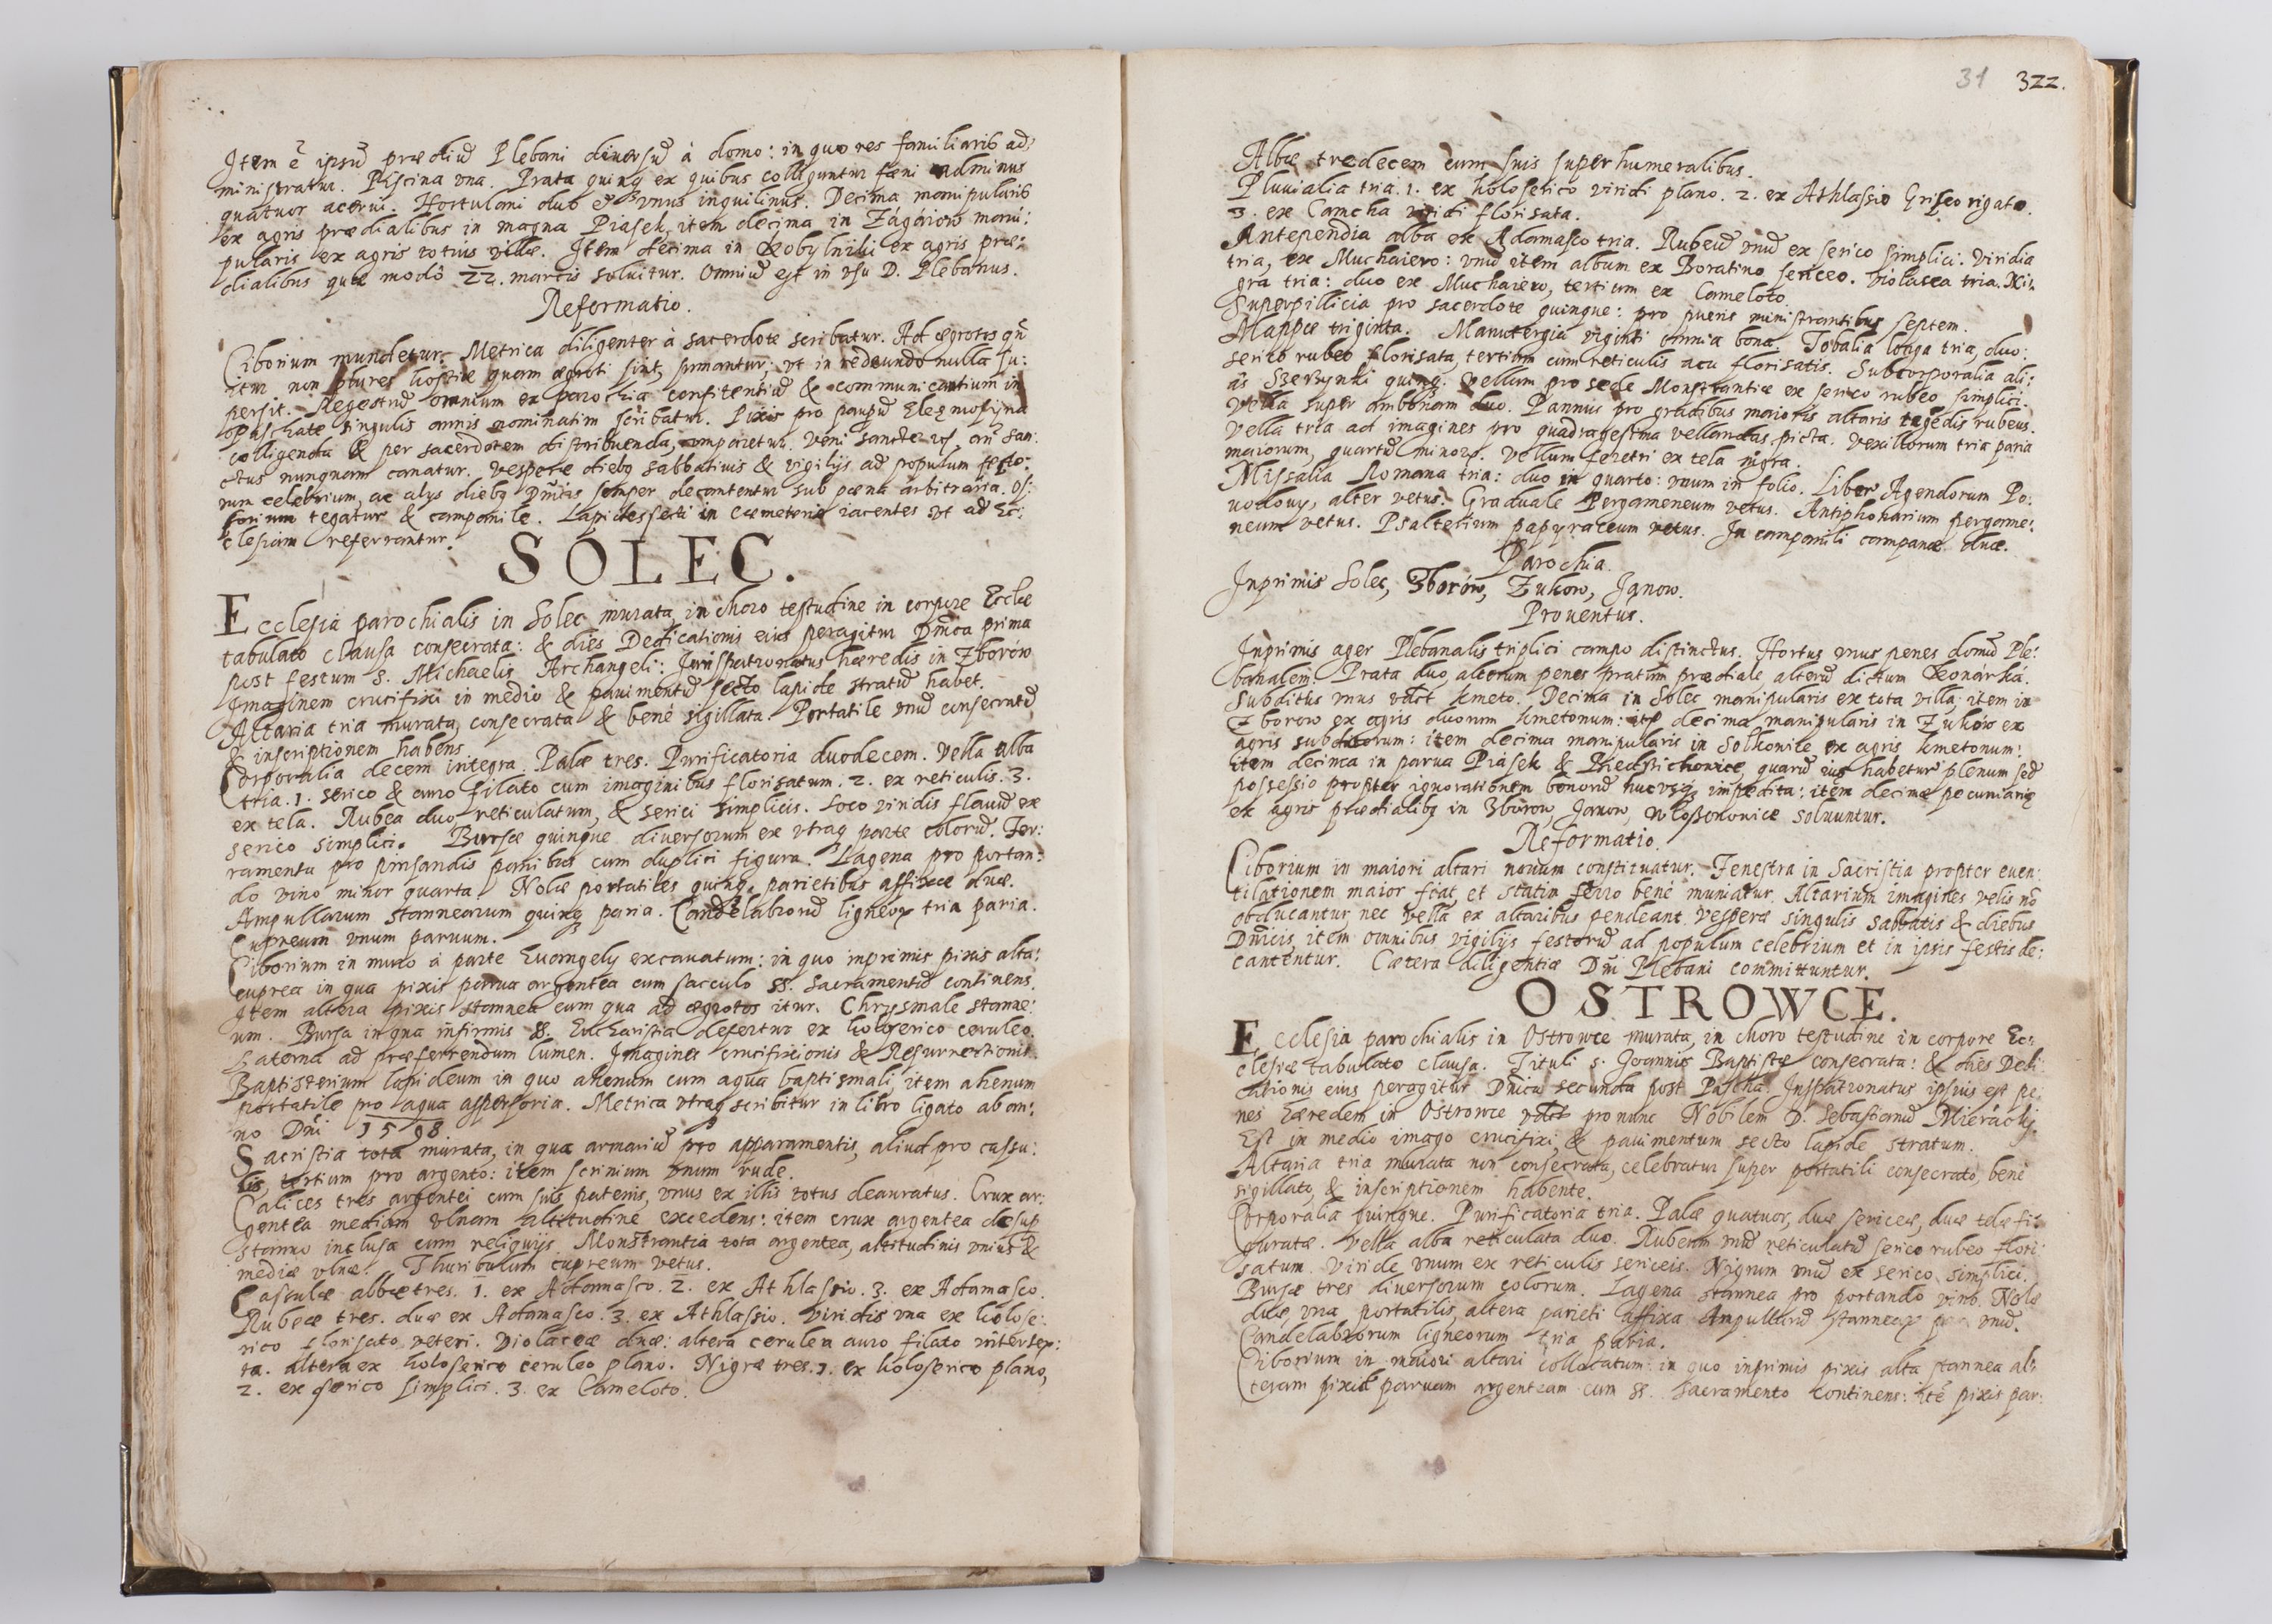 Item ẽ ipsũ prædiũ Plebani diuersũ à domo: in quo res familiaris ad:
ministratur. Piscina vna. Prata quinq ex quibus colliguntur fæni adminus
quatuor acerui. Hortulani duo & vnus inquilinus. Decima manipularis
ex agris prædialibus in magna Piasek, item decima in Zágáiow mani:
pularis ex agris totius villæ. Item decima in Kobylniki ex agris præ:
dialibus quæ modò 22. marcis soluitur. Omniũ est in vsu D. Plebanus.
Reformatio.
Ciborium mundetur. Metrica diligenter à sacerdote scribatur. Ad ægrotos qñ
itur non plures hostiæ quam ægroti sint, sumantur; vt in redeundo nulla su:
persit. Regestrũ omnium ex parochia confitentiũ & communicantium in
opus hate singulis annis nominatim scribatur. Pixis pro paupũ Eleemosyna
colligenda & per sacerdotem distribuenda, comparetur. Veni sancte añ San:
ctus nunquam canatur. Vesperæ diebq sabbativis & vigilijs ad populum festo:
rum celebrium, ac alys diebq Dñicis semper decantentur sub pæna arbitraria. Os:
sorium tegatur & campanile. Lapides secti in cæmeterio iacentes vt ad Ec:
clesiam referrantur.
SOLEC.
Ecclesia parochialis in Solec murata, in choro testudine in corpore Eccliæ
tabulato clausa consecrata: & dies Dedicationis eius peragitur Dñica prima
post festum S. Michaelis Archangeli: Jurispatronatus hæredis in Zborów
Imaginem crucifixi in medio & pauimentũ secto lapide stratũ habet.
Altaria tria murata, consecrata & bene sigillata. Portatile vnũ consecratũ,
& inscriptionem habens
Corporalia decem integra. Palæ tres. Purificatoria duodecem. Vella alba
tria. 1. serico & auro filato cum imaginibus florisatum. 2. ex reticulis. 3.
ex tela. Rubea duo reticulatum, & serici simplicis. Loco viridis flauũ ex
serico simplici. Bursæ quinque diuersorum ex vtraq parte colorũ. Fer:
ramenta pro pinsandis panibus cum duplici figura. Lagena pro portan:
do vino minor quarta. Nolæ portatiles quinq, parietibus affixæ duæ.
Ampullarum stannearum quinq paria. Candelabrorũ ligneorũ tria paria.
Cupreum vnum paruum.
Ciborium in muro à parte Euangely excauatum: in quo inprimis pixis alta:
cuprea in qua pixis parua argentea cum sacculo SS. Sacramentũ continens.
Item altera pixis stannea cum qua ad ægrotos itur. Chrysmale stanne:
um. Bursa in qua infirmis SS. Eucharistia defertur ex holoserico ceruleo.
Laterna ad præferrendum lumen. Imagines crucifixionis & Resurrectionis.
Baptisterium lapideum in quo ahenum cum aqua baptismali, item ahenum
portatile pro aqua aspersoria. Metrica vtraq scribitur in libro ligato ab an:
no Dñi 1598
Sacristia tota murata, in qua armariũ pro apparamentis, aliud pro cassu:
lis, tertium pro argento: item scrinium vnum rude.
Calices tres argentei cum suis patenis, vnus ex illis totus deauratus. Crux ar:
gentea mediam vlnam altitudine excedens: item crux argentea desup
stanno inclusa cum reliquijs. Monstrantia tota argentea, altitudinis vnius &
mediæ vlnæ. Thuribulum cupreum vetus.
Casulæ albæ tres. 1. ex Adamasco. 2. ex Athlassio. 3. ex Adamasco.
Rubeæ tres. duæ ex Adamasco. 3. ex Athlassio. Viridis vna ex holose:
rico florisato veteri. Violaceæ duæ: altera cerulea auro filato intersep:
ta. altera ex holoserico ceruleo plano. Nigræ tres. 1. ex holoserico plano,
2. ex serico simplici. 3. ex Cameloto.
31 322.
Albæ tredecem cum suis superhumeralibus.
Pluuialia tria. 1. ex holoserico viridi plano. 2. ex Athlassio Griseo rigato.
3. ex Camcha viridi florisata.
Antependia alba ex Adamasco tria. Rubeũ vnũ ex serico simplici. Viridia
tria, ex Muchaiero: vnũ item album ex Boratino sericeo. Violacea tria. Ni:
gra tria: duo ex Muchaiero, tertium ex Cameloto.
Superpillicia pro sacerdote quinque: pro pueris ministrantibus septem.
Mappæ triginta. Manutergia viginti omnia bona. Tobalia longa tria, duo:
serico rubeo florisata, tertium cum reticulis acu florisatis. Subcorporalia ali:
ás Szerzynki quinq. Vellum pro sede Monstrantiæ ex serico rubeo simplici.
Vella super ambonam duo. Pannus pro gradibus maioris altaris tegẽdis rubeus.
Vella tria ad imagines pro quadragesima vellandas picta. Vexillorum tria paria
maiorum, quartũ minorũ. Vellum feretri ex tela nigra.
Missalia Romana tria: duo in quarto: vnum in folio. Liber Agendorum Po:
wodowy, alter vetus. Graduale Pergameneum vetus. Antiphonarium pergame:
neum vetus. Psalterium papyraceum vetus. In campanili campanæ duæ.
Parochia.
Inprimis Solec, Zborów, Zukow, Janow.
Prouentus.
Inprimis ager Plebanalis triplici campo distinctus. Hortus vnus penes domũ Ple:
banalem. Prata duo, alterum penes pratum prædiale, alterũ dictum Konárká.
Subditus vnus vdct kmeto. Decima in Solec manipularis ex tota villa, item in
Zborow ex agris duorum kmetonum: itẽ decima manipularis in Zukow ex
agris subditorum: item decima manipularis in Solkowice ex agris kmetonum:
item decima in parua Piásek & Biechichowice, quarũ eius habetur plenum sed
possessio propter ignorationem bonorũ hucvsq impedita: item decimæ pecuniariæ
ex agris prædialibq in Zborow, Janow, Włoszonowice soluuntur.
Reformatio.
Ciborium in maiori altari nouum constituatur. Fenestra in Sacristia propter euen:
tilationem maior fiat, et statim ferro bene muniatur. Altarium imagines velis nõ
obducantur, nec vella ex altaribus pendeant. Vesperæ singulis Sabbatis & diebus
Dñicis, item omnibus vigilijs festorũ ad populum celebrium et in ipsis festis de:
cantentur. Cætera diligentiæ Dñi Plebani committuntur.
OSTROWCE.
Ecclesia parochialis in Ostrowce murata, in choro testudine in corpore Ec:
clesiæ tabulato clausa. Tituli S. Joannis Baptistæ consecrata: & dies Dedi:
cationis eius peragitur Dñica secunda post Pascha. Juspatronatus ipsius est pe:
nes hæredem in Ostrowce vdct pro nunc Nobilem D. Sebastianũ Mierácky.
Est in medio imago crucifixi, & pauimentum secto lapide stratum.
Altaria tria murata non consecrata, celebratur super portatili consecrato, bene
sigillato, & inscriptionem habente.
Corporalia quinque. Purificatoria tria. Palæ quatuor, duæ sericeæ, duæ telæ fi:
guratæ. Vella alba reticulata duo. Rubeum vnũ reticulatũ serico rubeo flori:
satum. Viride vnum ex reticulis sericeis. Nigrum vnũ ex serico simplici.
Bursæ tres diuersorum colorum. Lagena stannea pro portando vino. Nolæ
duæ, vna portatilis, altera parieti affixa. Ampullarũ stannearũ vnũ.
Candelabrorum ligneorum tria paria.
Ciborium in maiori altari collocatum: in quo inprimis pixis alta stannea al:
teram pixidẽ paruam argenteam cum SS. Sacramento continens: itẽ pixis par: